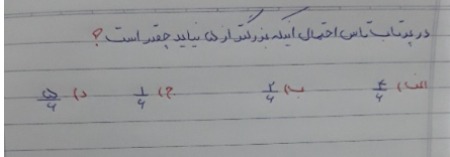 در پرتاب تاس احتمال اینکه بزرگتر از ۵ نیاید چقدر است؟
الف) ۴/۶ ب) ۲/۶ ج) ۱/۶ د) ۵/۶